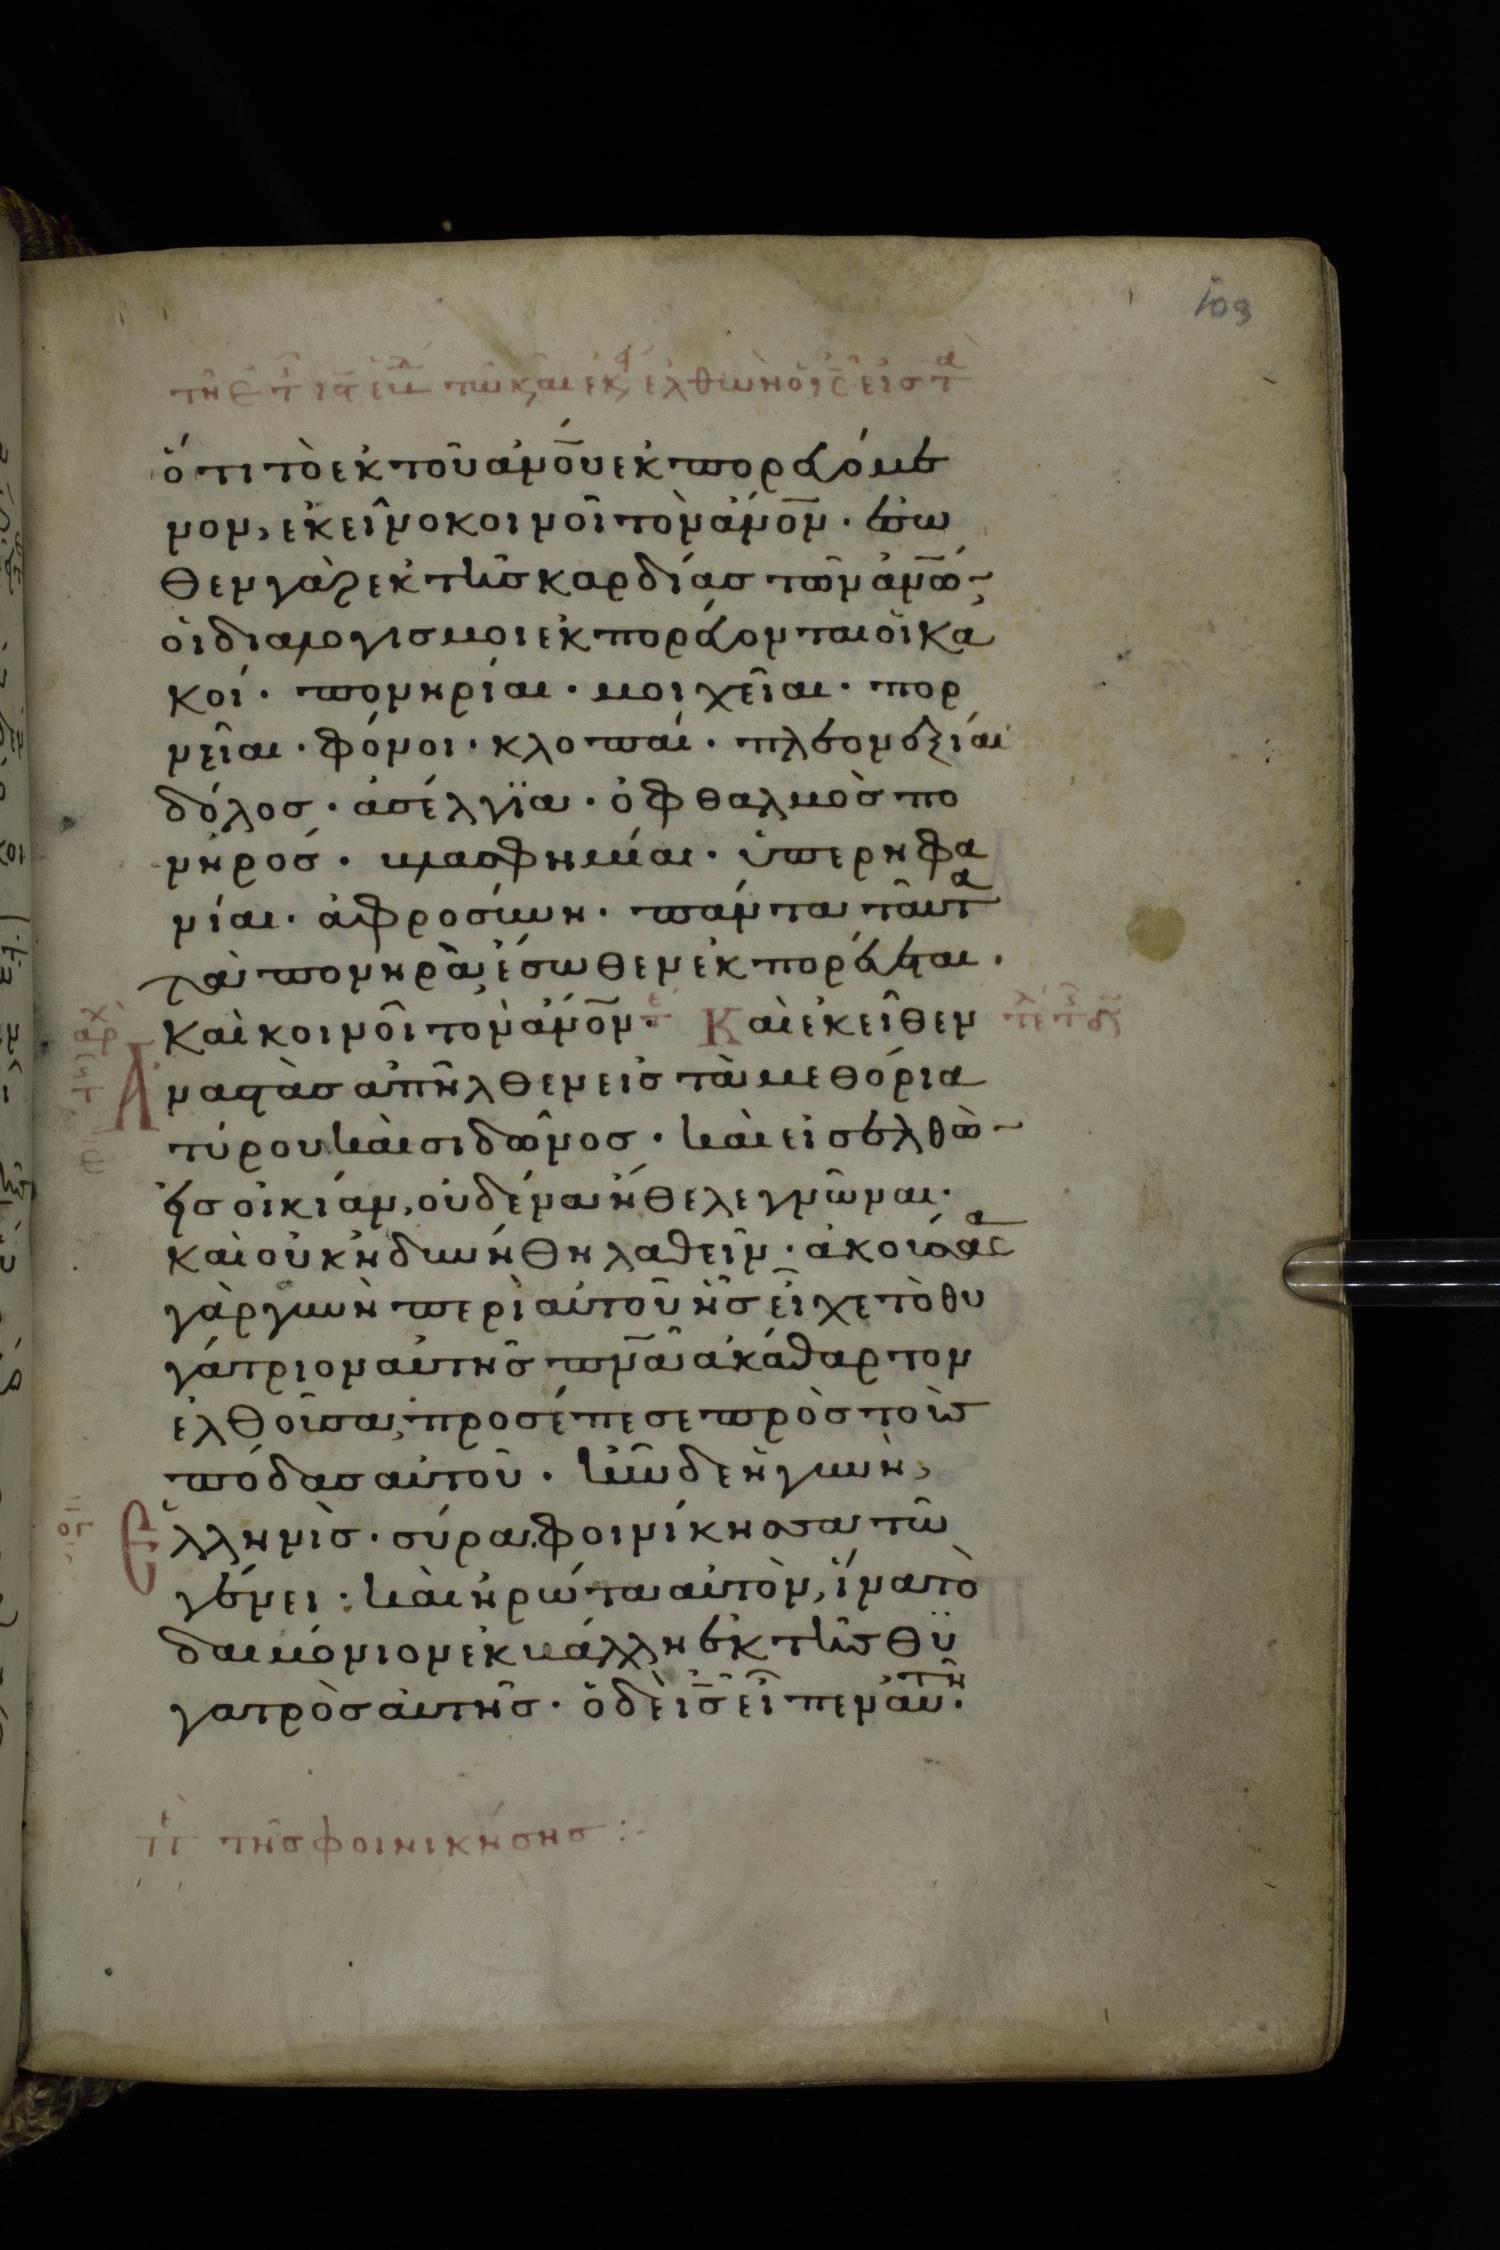 103
ὅτι τὸ ἐκ τοῦ ἀν̅ο̅υ ἐκπορευόμε
νον, ἐκεῖνο κοινοῖ τὸν ἄν̅ο̅ν · ἔσω
θεν γὰρ ἐκ τῆς καρδίας τῶν ἀν̅ω̅ν
οἱ διαλογισμοι ἐκπορεύονται οἱ κα
κοί · πονηρίαι · μοιχεῖαι · πορ
νεῖαι · φόνοι · κλοπαί · πλεονεξίαι
δόλος · ἀσέλγϊα · ὀφθαλμὸς πο
νηρός · βλασφημίαι · ὑπερηφα
νίαι · ἀφροσύνη · πάντα ταῦτα
τὰ πονηρὰ ἔσωθεν ἐκπορεύεται ·
καὶ κοινοῖ τὸν ἄν̅ο̅ν · Καὶ ἐκεῖθεν
ἀναστὰς ἀπῆλθεν εἰς τὰ μεθόρια
τύρου καὶ σιδῶνος · καὶ εἰσελθὼν
εἰς οἰκίαν, οὐδένα ἤθελε γνῶναι ·
καὶ οὐκ ἠδυνήθη λαθεῖν · ἀκούσασα
γὰρ γυνὴ περὶ αὐτοῦ ἧς εἶχε τὸ θυ
γάτριον αὐτῆς π̅ν̅α̅ ἀκάθαρτον
ἐλθοῦσα, προσέπεσε πρὸς τοὺς
πόδας αὐτοῦ · ἦν δὲ ἡ γυνὴ,
Ἑλληνὶς · σύρα φοινίκησσα τῶ
γένει · καὶ ἠρώτα αὐτὸν, ἵνα τὸ
δαιμόνιον ἐκβάλλη ἐκ τῆς θυ
γατρὸς αὐτῆς · ὁ δὲ ι̅ς̅ εἶπεν αὐτῆ ·
τῆς φοινικήσης :